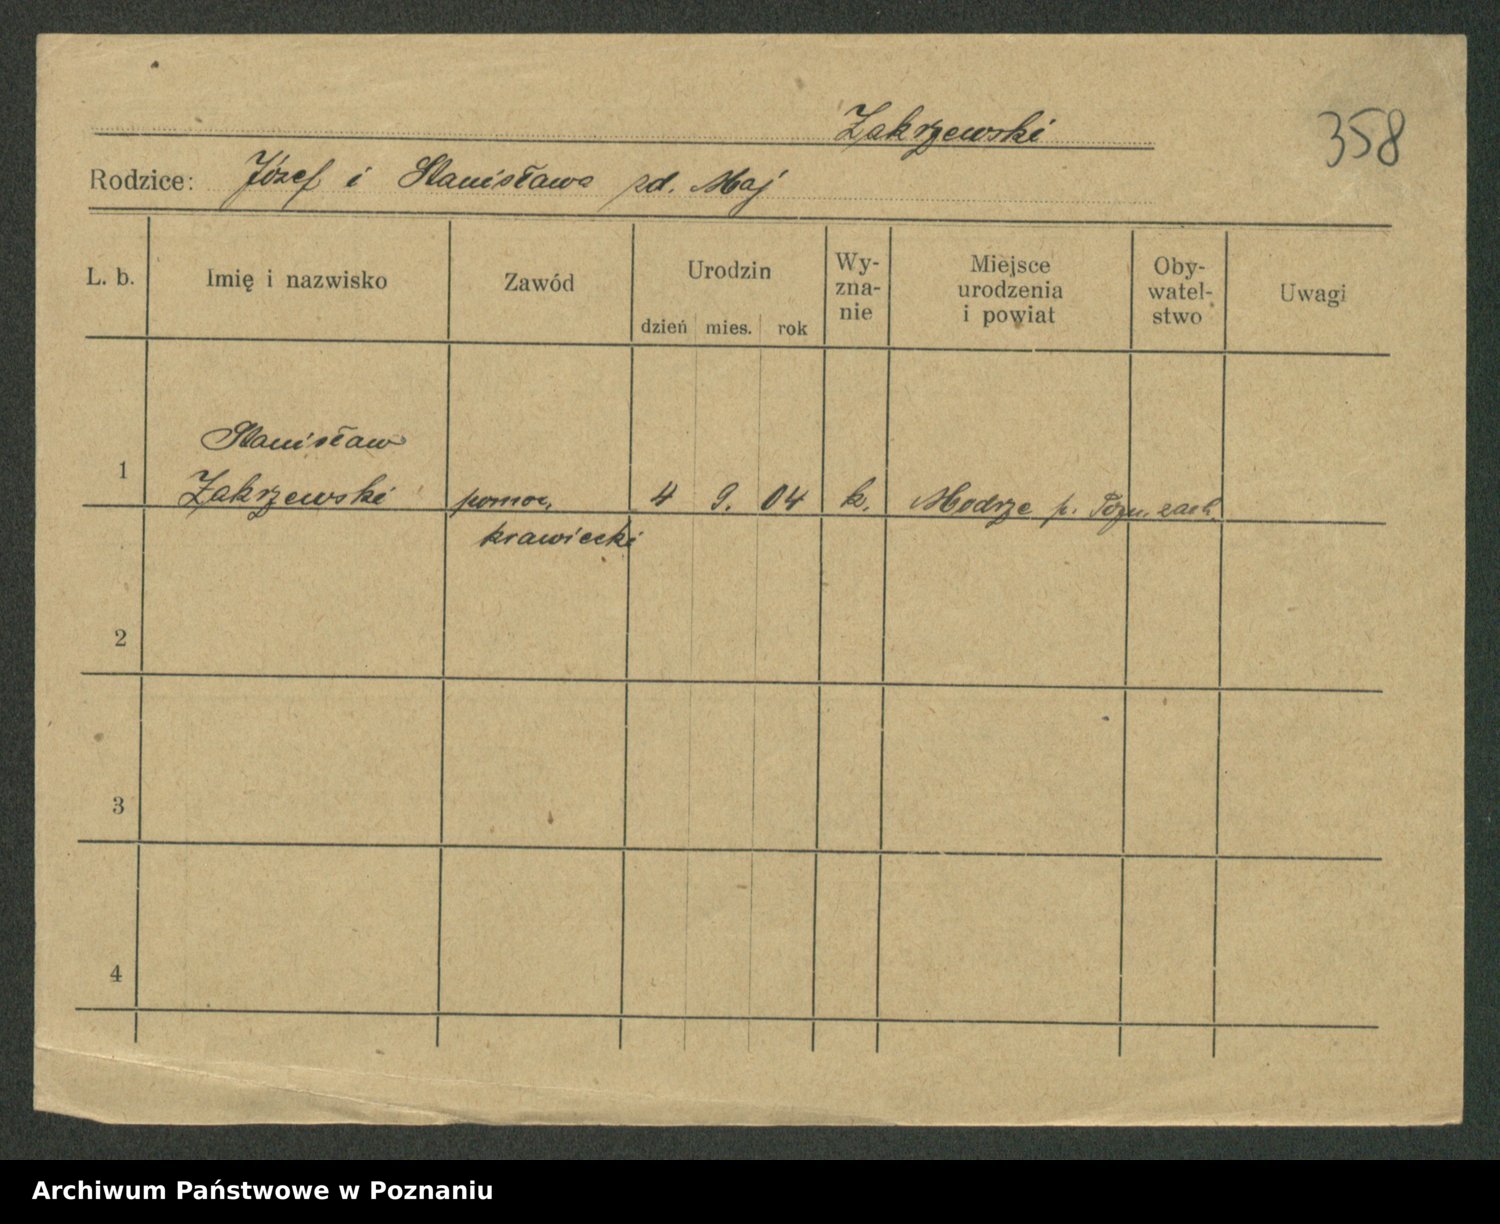 Zakrzewski
358
Rodzice: Józef i Stanisława zd. Maj
L. b. Imię i nazwisko Zawód Urodzin dzień mies. rok Wy-
zna-
nie Miejsce
urodzenia
i powiat Oby-
watel-
stwo Uwagi
Stanisław
1 Zakrzewski pomoc. 4 9. 04 k. Modrze p. Pozn. zach.
krawiecki
2
3
4
Archiwum Państwowe w Poznaniu